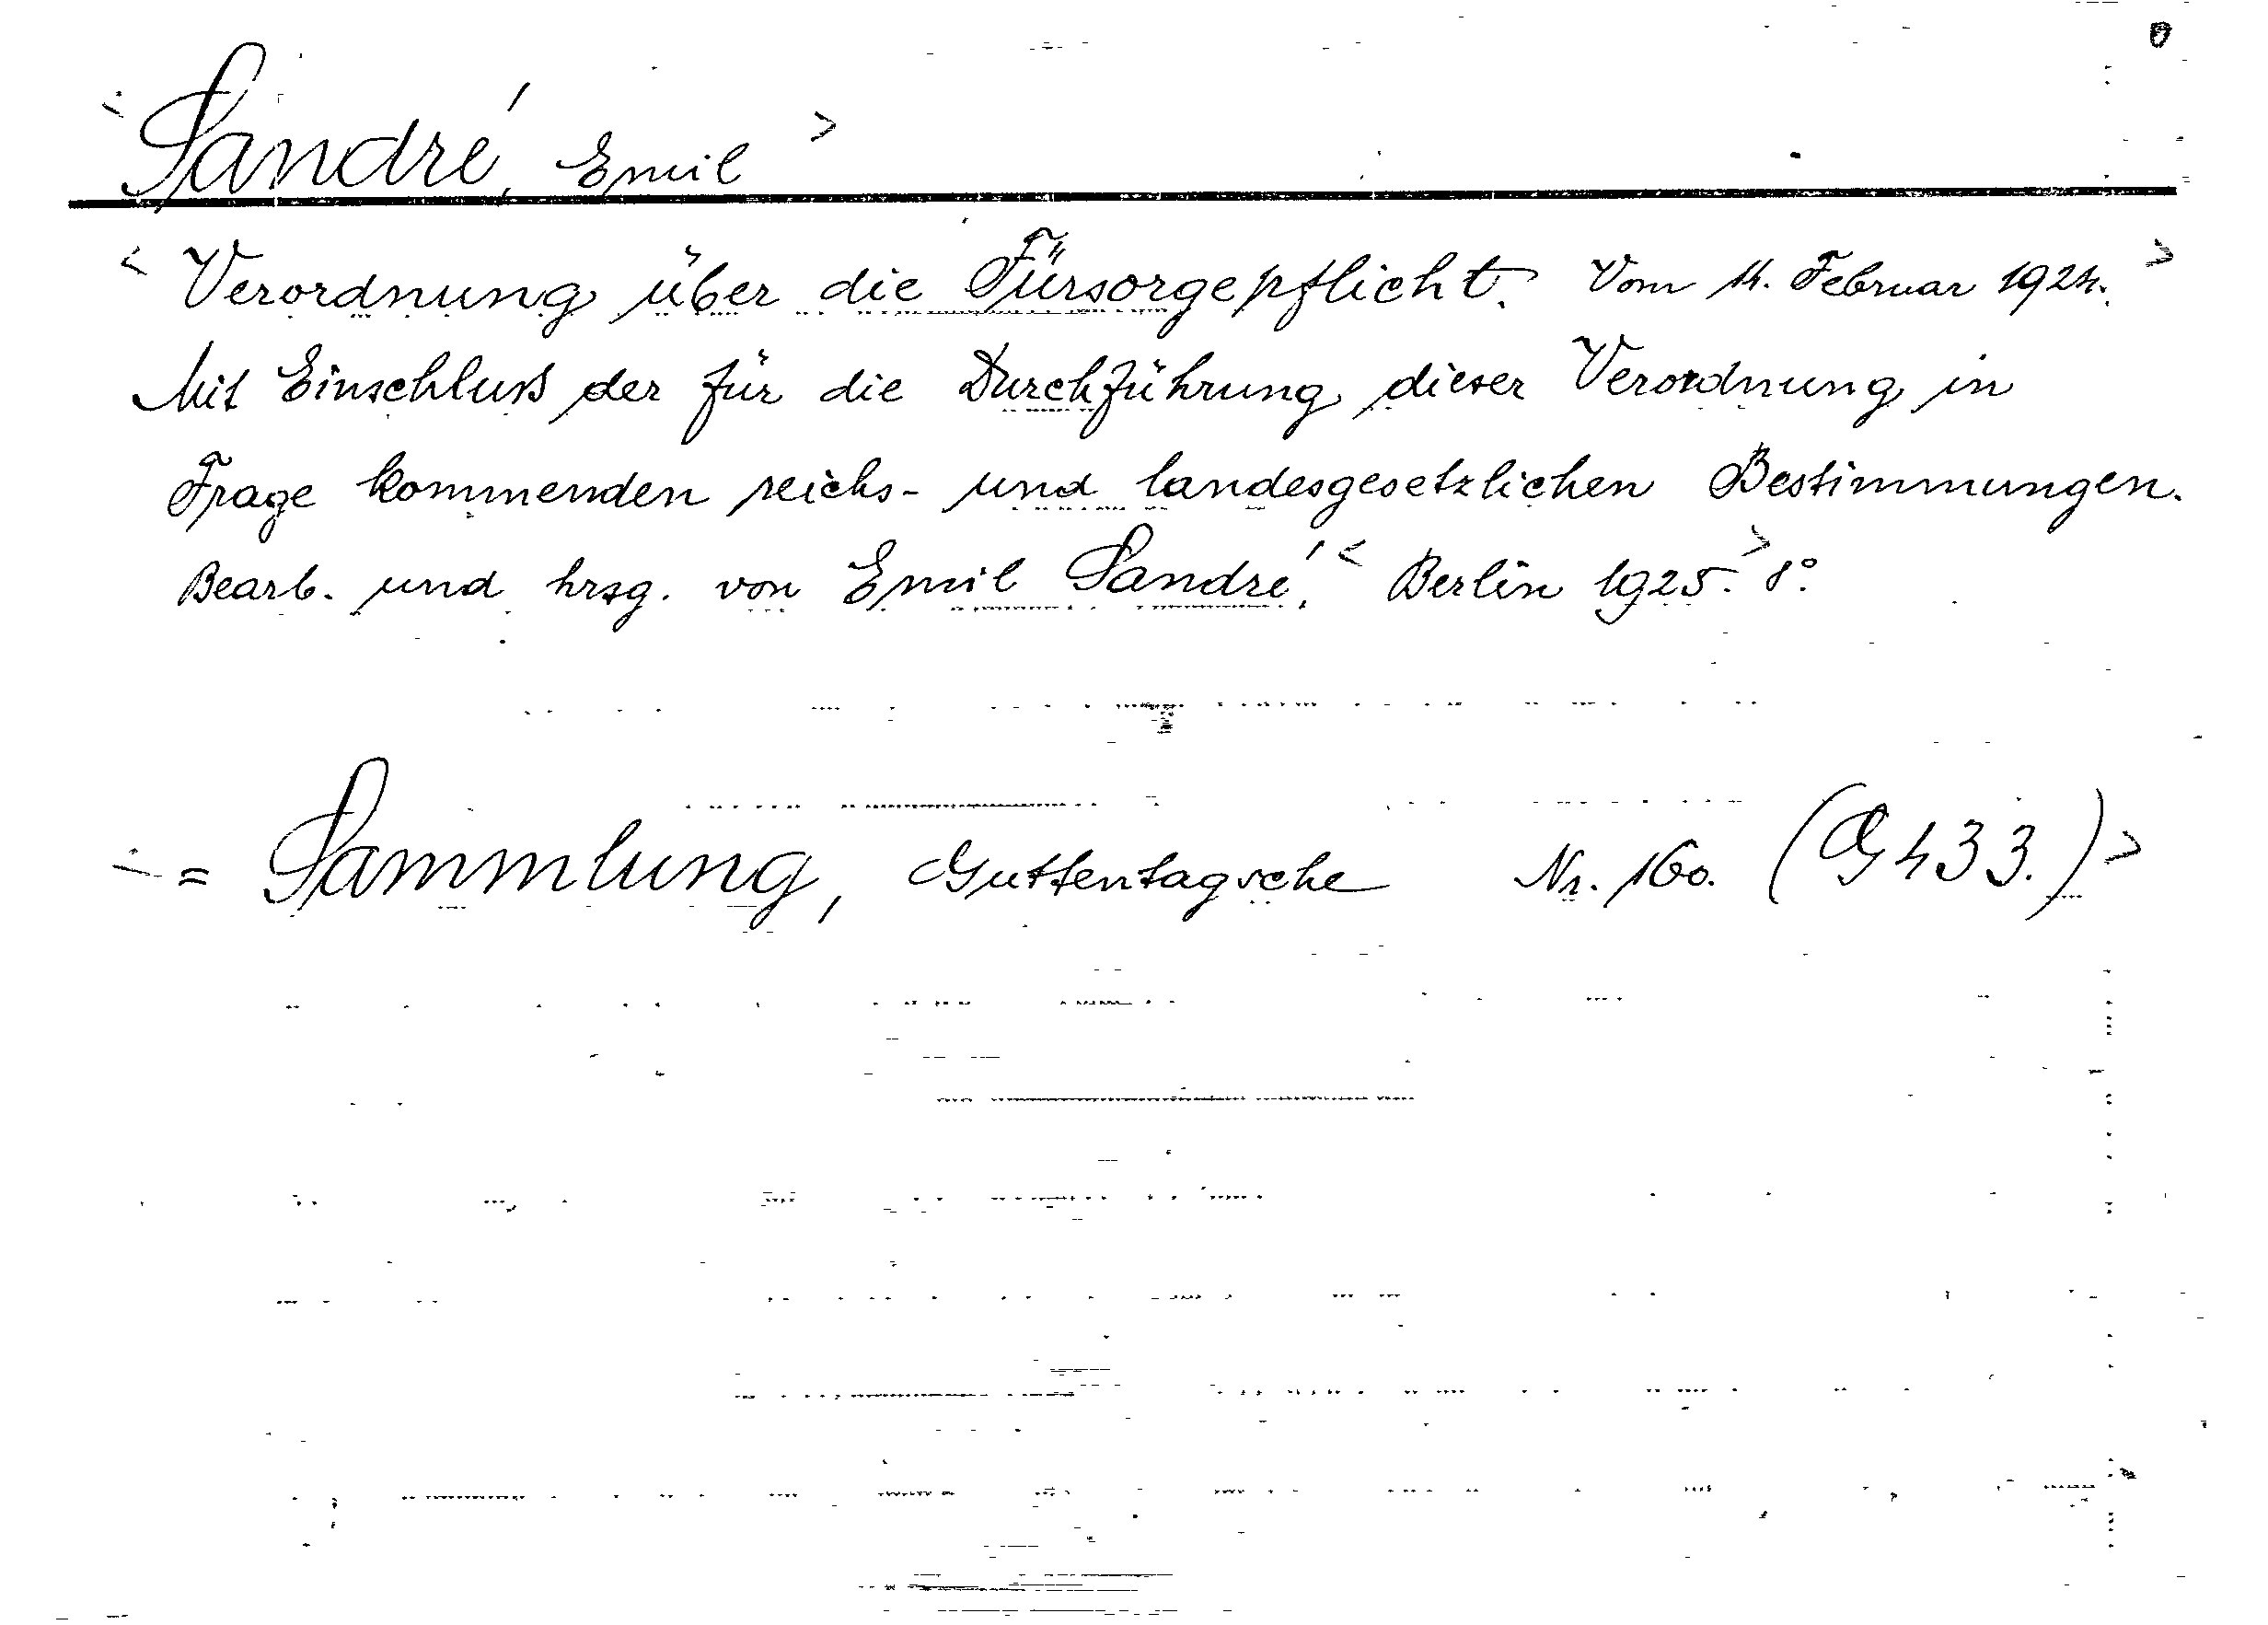 < Sandré, Emil >
< Verordnung über die Fürsorgepflicht. Vom 14. Februar 1924. >
Mit Einschluß der für die Durchführung dieser Verordnung in
Frage kommenden reichs- und landesgesetzlichen Bestimmungen.
Bearb. und hrsg. von Emil Sandré. < Berlin 1925. > 8°.
< = Sammlung, Guttentagsche Nr. 160. (G 433.) >